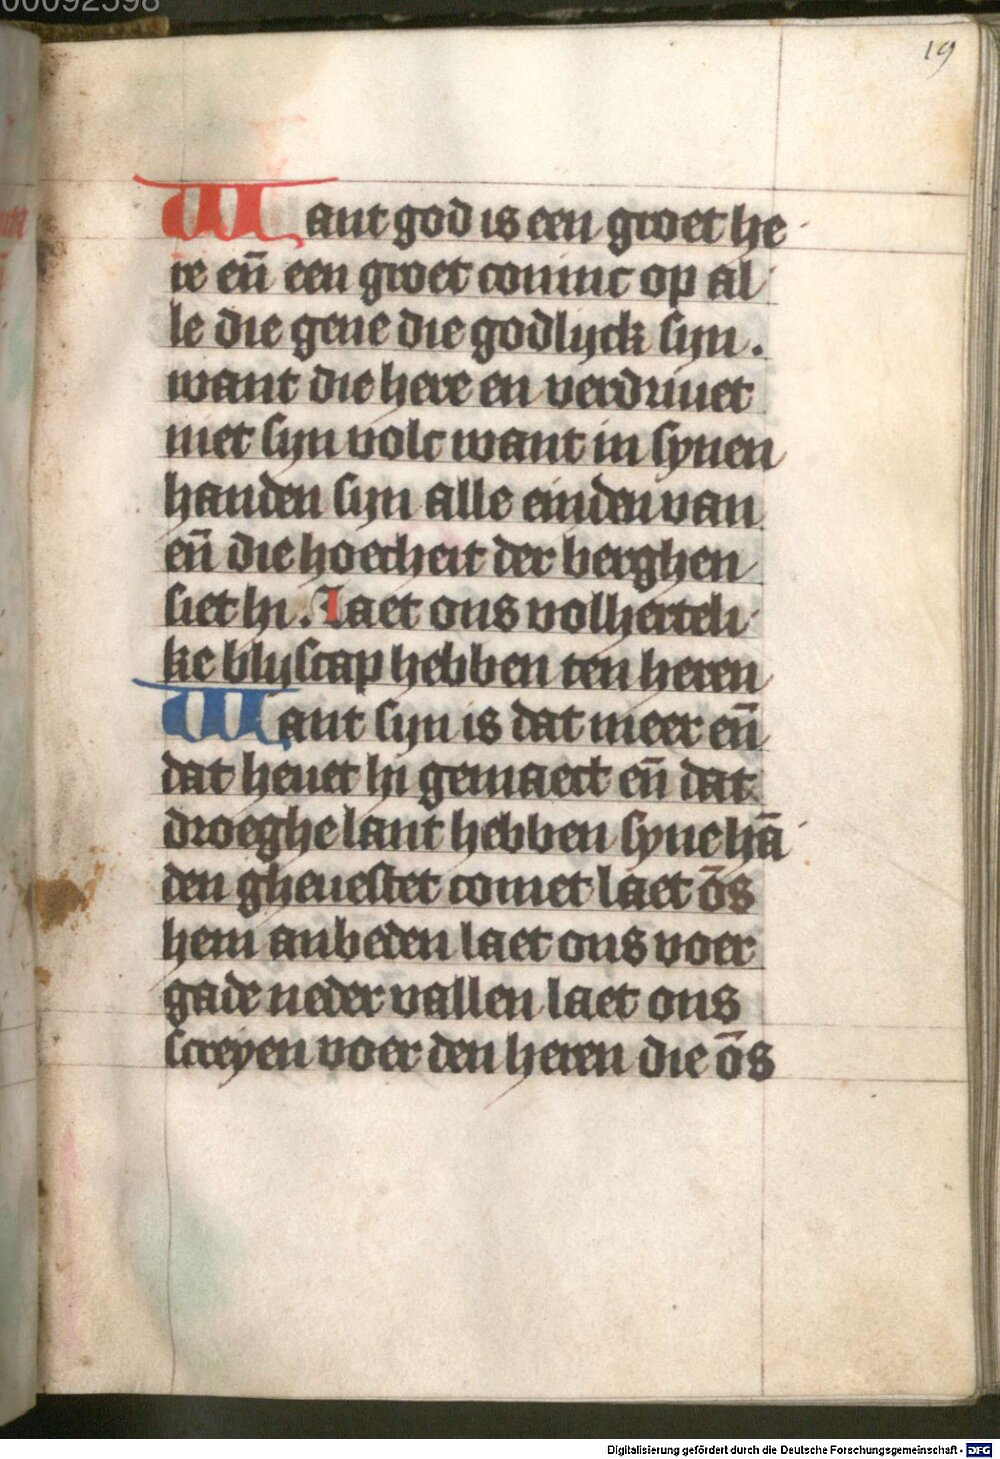 00092598
19
Want god is een groet he
re en̄ een groet coninc op al
le die gene die godlijck sijn.
want die here en verdriuet
niet sijn volc want in synen
handen sijn alle einden van
en̄ die hoecheit der berghen
siet hi. Laet ons volherteli
ke blijscap hebben ten heren
Want sijn is dat meer en̄
dat heuet hi gemaect en̄ dat
droeghe lant hebben syne hā
den gheuestet comet laet ōs
hem anbeden laet ons voer
gade neder vallen laet ons
screyen voer den heren die ōs
Digitalisierung gefördert durch die Deutsche Forschungsgemeinschaft - DFG